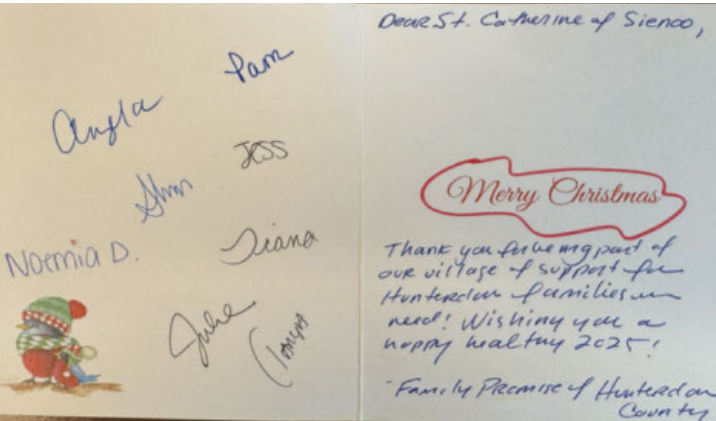 Pam
Angela
Jess
Noemia D.
Diana
Julie
Dear St. Catherine of Siena,
Merry Christmas
Thank you for being part of
our village of support for
Hunterdon families in
need! Wishing you a
happy healthy 2025!
Family Promise of Hunterdon
County